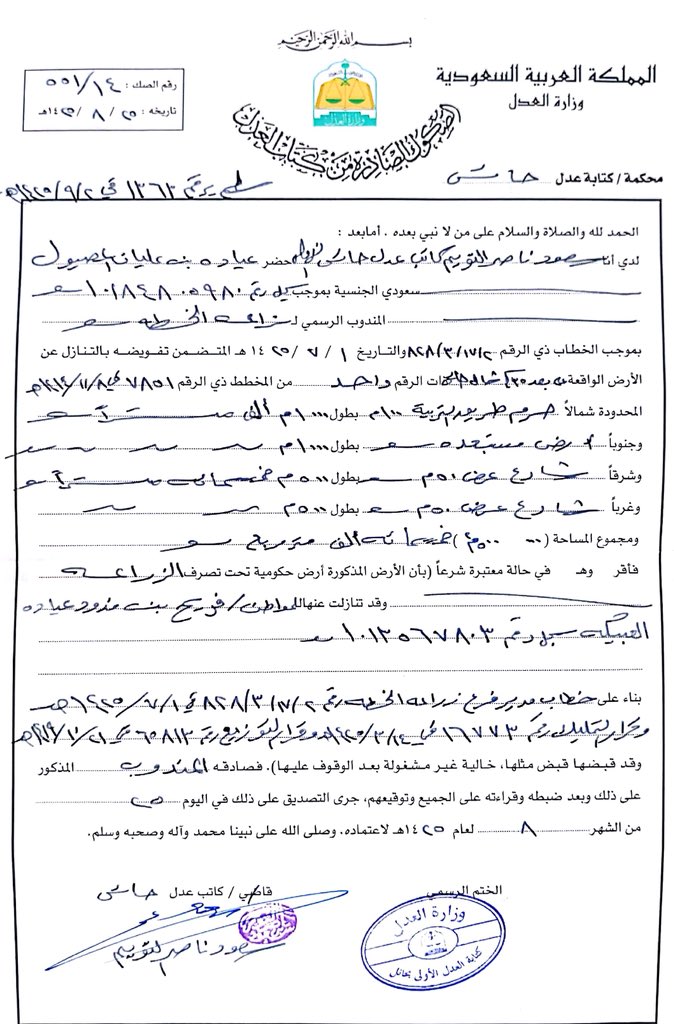 بسم الله الرحمن الرحيم
المملكة العربية السعودية
وزارة العدل
رقم الصك : ٥٥١/١٤
تاريخه : ٢٥ / ٨ / ١٤٢٥هـ
وزارة العدل
الصكوك الصادرة من كتاب العدل
محكمة / كتابة عدل حائل
برقم ١٣٦١ في ٢/٩/١٤٢٥هـ
الحمد لله والصلاة والسلام على من لا نبي بعده . أمابعد :
لدي أنا سعود ناصر التويم كاتب عدل حائل حضر عياده بن عليان
سعودي الجنسية بموجب سجل رقم ١٠١٨٤٨٠٥٩٨٠
المندوب الرسمي لـ زراعة الخطه
بموجب الخطاب ذي الرقم ٨٢٨/٣/١٧/٢ والتاريخ ١ / ٧ / ١٤٢٥ هـ المتضمن تفويضه بالتنازل عن
الأرض الواقعة شمال ذات الرقم واحد من المخطط ذي الرقم ٧٨٥١
المحدودة شمالاً حرم طريق بطول ١٠٠٠م ألف متراً
وجنوباً أرض مستبعده بطول ١٠٠٠م
وشرقاً شارع عرض ٥٠م بطول ٥٠٠م خمسمائة متراً
وغرباً شارع عرض ٥٠م بطول ٥٠٠م
ومجموع المساحة (٥٠٠٠٠٠م) خمسمائة ألف متر مربع
فأقر وهـ في حالة معتبرة شرعاً (بأن الأرض المذكورة أرض حكومية تحت تصرف الزراعة
وقد تنازلت عنها للمواطن / فريح بن عياده
سجل رقم ١٠١٣٥٦٧٨٠٣
بناء على خطاب مدير فرع زراعة الخطه رقم ٨٢٨/٣/١٧/٢ في ١/٧/١٤٢٥هـ
وقرار رقم ١٦٧٧٣ في وقرار التوزيع رقم ٦٥٨١٣ في
وقد قبضها قبض مثلها، خالية غير مشغولة بعد الوقوف عليها). فصادقه المندوب المذكور
على ذلك وبعد ضبطه وقراءته على الجميع وتوقيعهم، جرى التصديق على ذلك في اليوم ٢٥
من الشهر ٨ لعام ١٤٢٥هـ لاعتماده. وصلى الله على نبينا محمد وآله وصحبه وسلم.
الختم الرسمي
قاضي / كاتب عدل حائل
سعود ناصر التويم
وزارة العدل
كتابة العدل الأولى بحائل